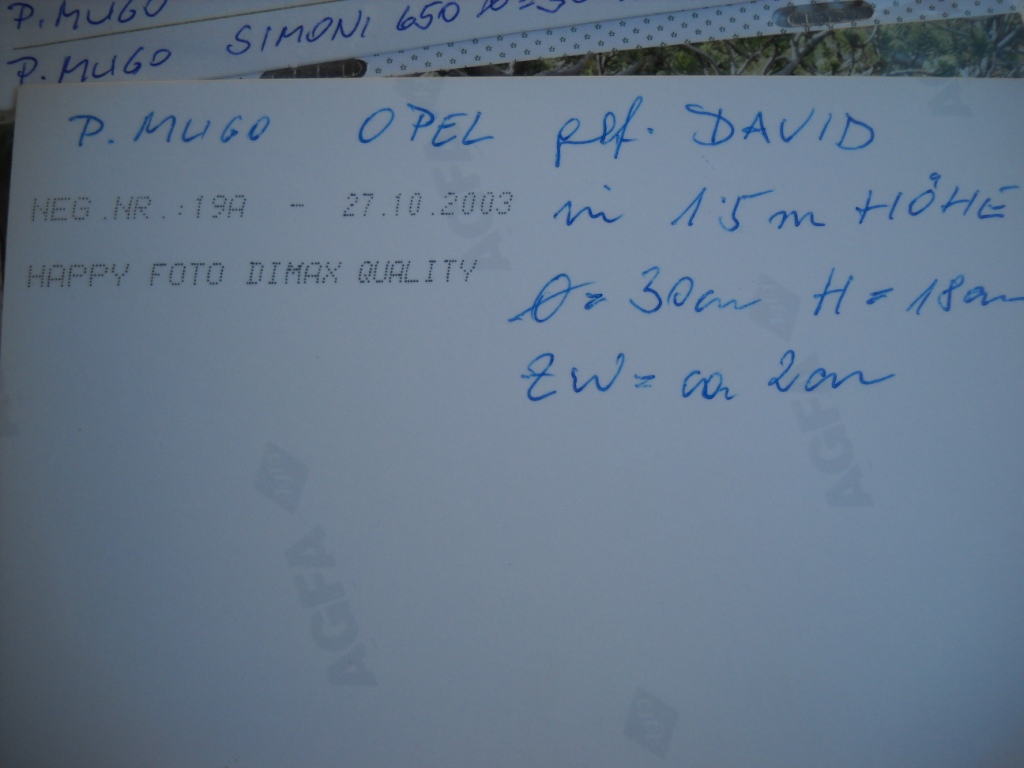 P. MUGO
P. MUGO SIMONI 650
P. MUGO OPEL gef. DAVID
in 1.5 m HÖHE
NEG.NR.:19A - 27.10.2003
HAPPY FOTO DIMAX QUALITY
Ø = 30cm H = 18cm
ZW = ca 2cm
AGFA
AGFA
AGFA
AGFA